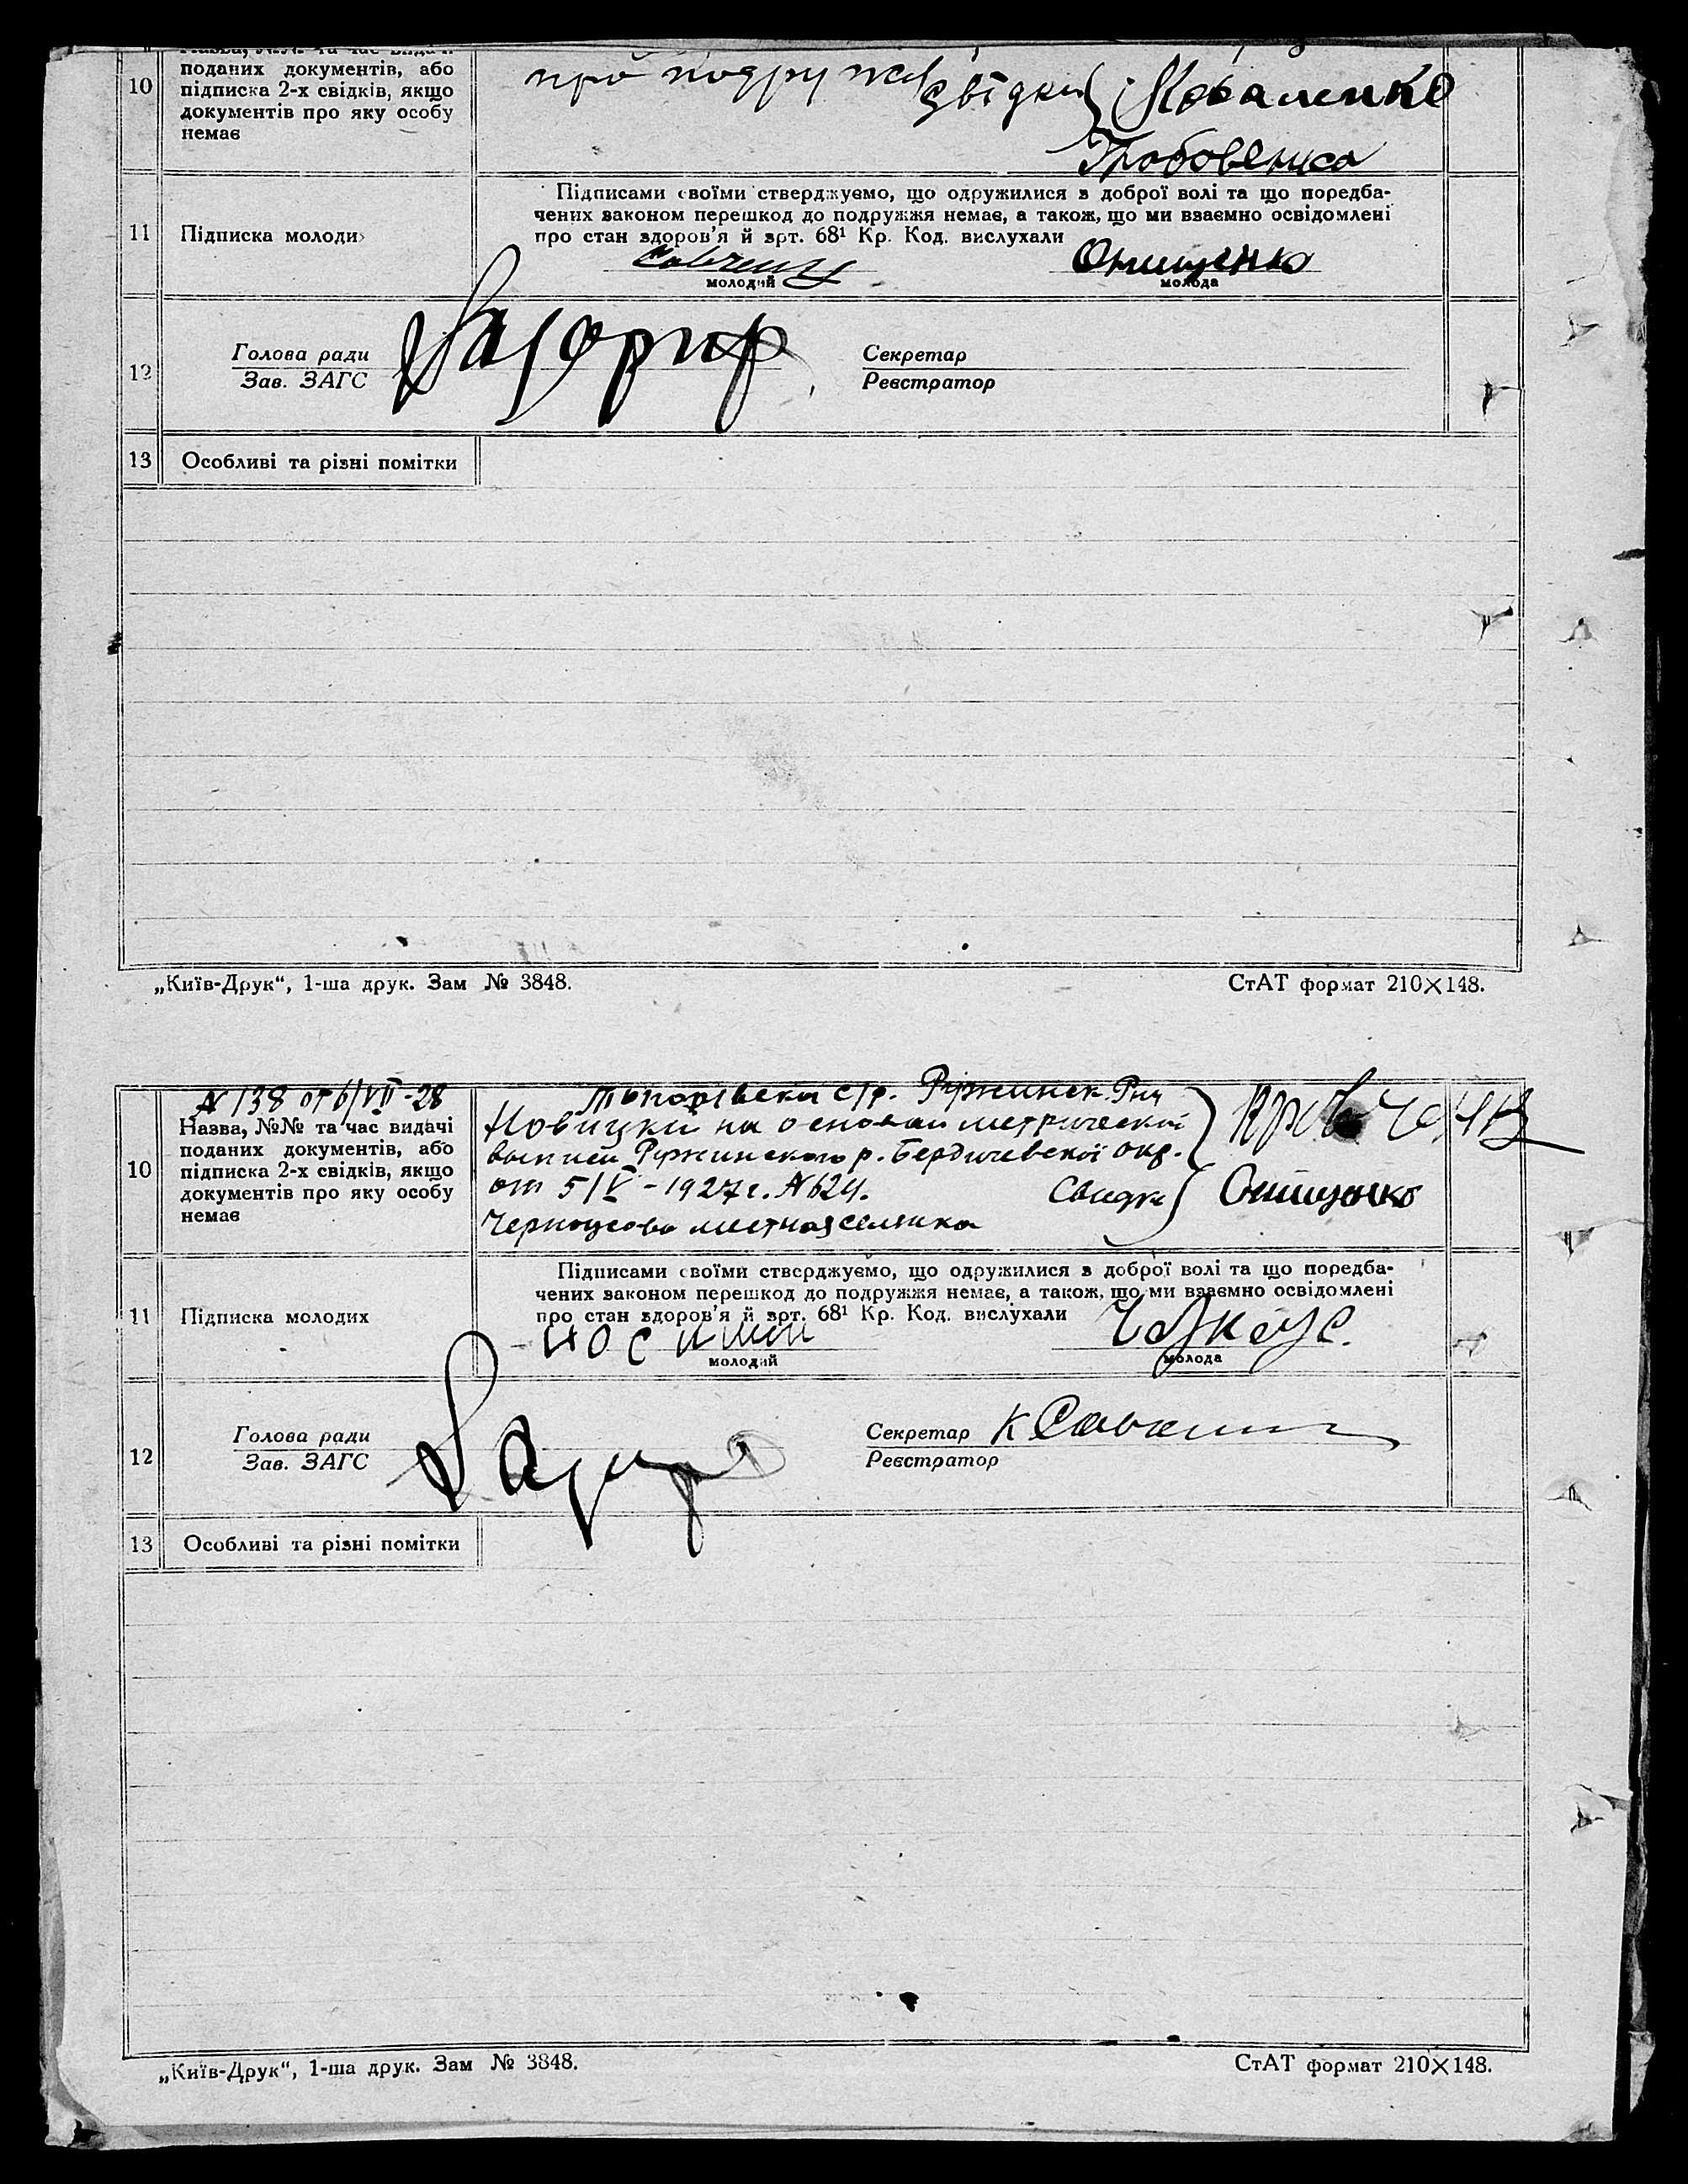 10
поданих документів, або
підписка 2-х свідків, якщо
документів про яку особу
немає
про подружж
Свідки
Коваленко
11
Підписка молоди
Підписами своїми стверджуємо, що одружилися з доброї волі та що поредба-
чених законом перешкод до подружжя немає, а також, що ми взаємно освідомлені
про стан здоров'я й врт. 68¹ Кр. Код. вислухали
Онищенко
молодий
молода
12
Голова ради
Зав. ЗАГС
Секретар
Реєстратор
13
Особливі та різні помітки
„Київ-Друк“, 1-ша друк. Зам № 3848.
СтАТ формат 210×148.
N 138 от 6/VII-28
10
Назва, №№ та час видачі
поданих документів, або
підписка 2-х свідків, якщо
документів про яку особу
немає
стр. Ружинск.
Новицкий на основан метрической
выписи Ружинского р. Бердичевской окр.
от 5/V-1927г. N 624.
Черноусова местная селянка
Свидки
Онищенко
11
Підписка молодих
Підписами своїми стверджуємо, що одружилися з доброї волі та що поредба-
чених законом перешкод до подружжя немає, а також, що ми взаємно освідомлені
про стан здоров'я й врт. 68¹ Кр. Код. вислухали
молодий
молода
12
Голова ради
Зав. ЗАГС
Секретар
Реєстратор
13
Особливі та різні помітки
„Київ-Друк“, 1-ша друк. Зам № 3848.
СтАТ формат 210×148.